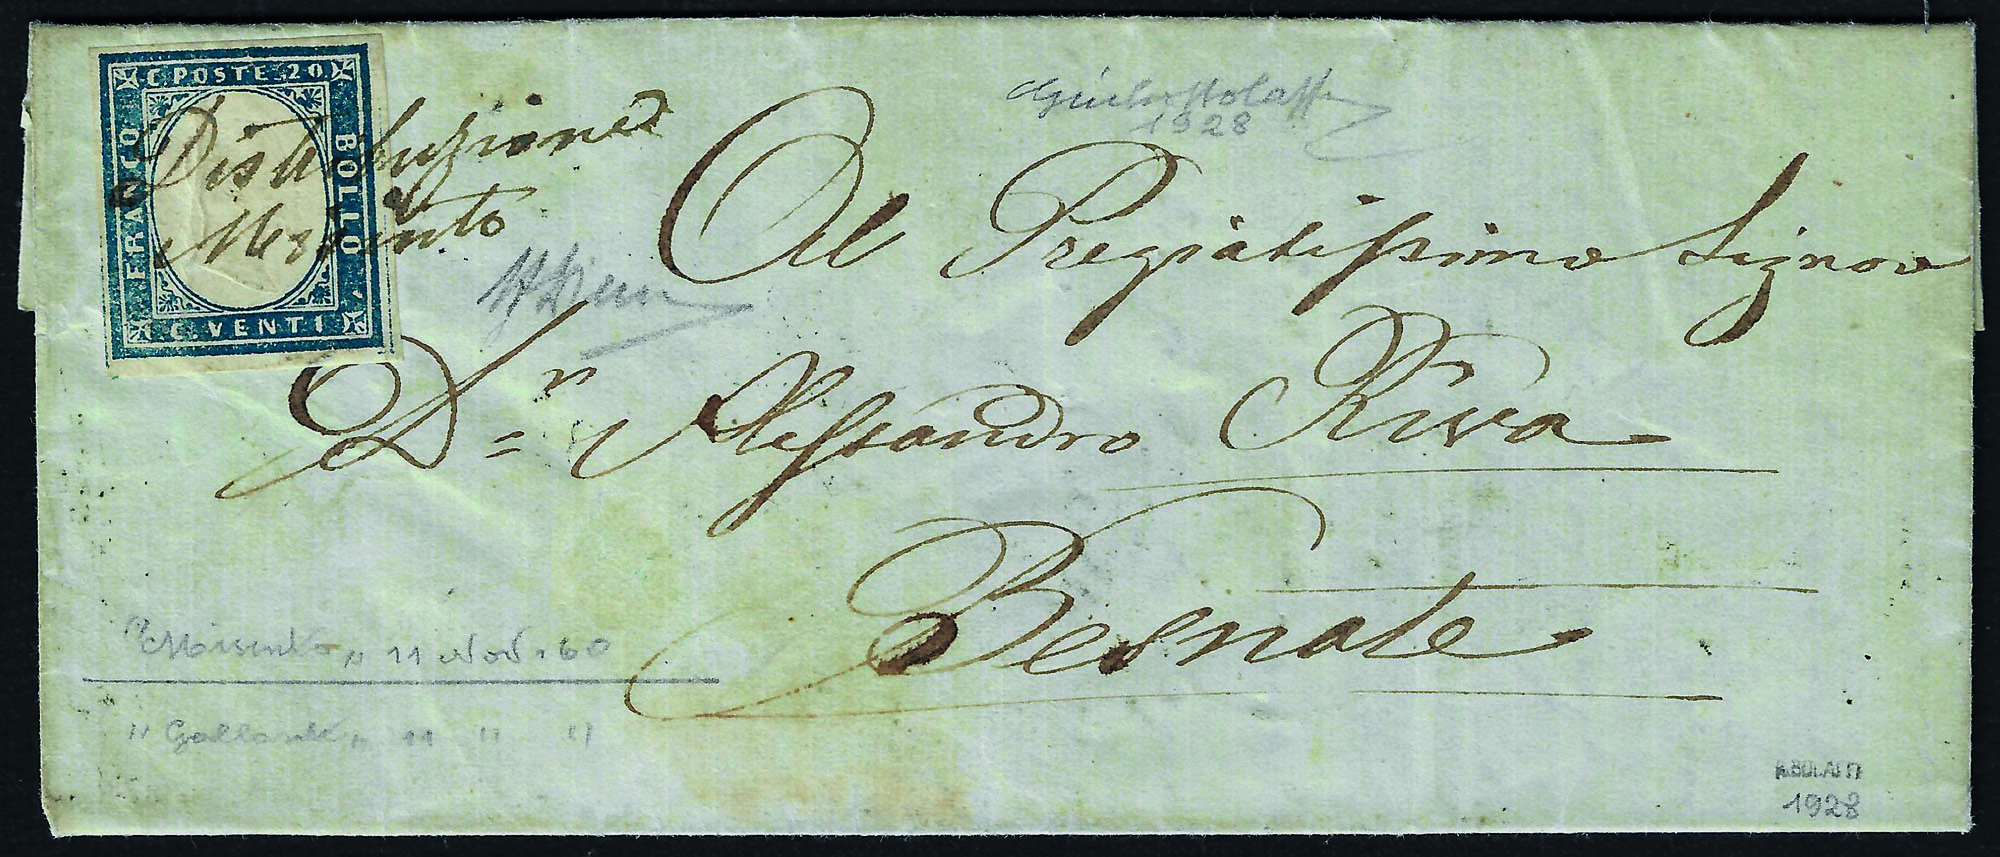 C. POSTE 20
FRANCO
BOLLO
C. VENTI
Distribuzione di
Mesinto
1928
Al Pregiatissimo Signore
Dn = Alessandro Riva
Besnate
"Misinto" 11 Nov. 60
"Gallarate" 11 " "
A. BOLAFFI
1928